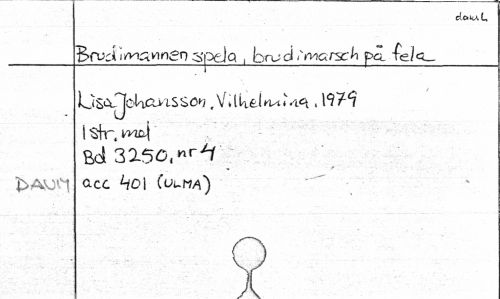 daum
Brudimannen spela, brudimarsch på fela
Lisa Johansson, Vilhelmina, 1979
1 str. mel
Bd 3250, nr 4
DAUM acc 401 (ULMA)